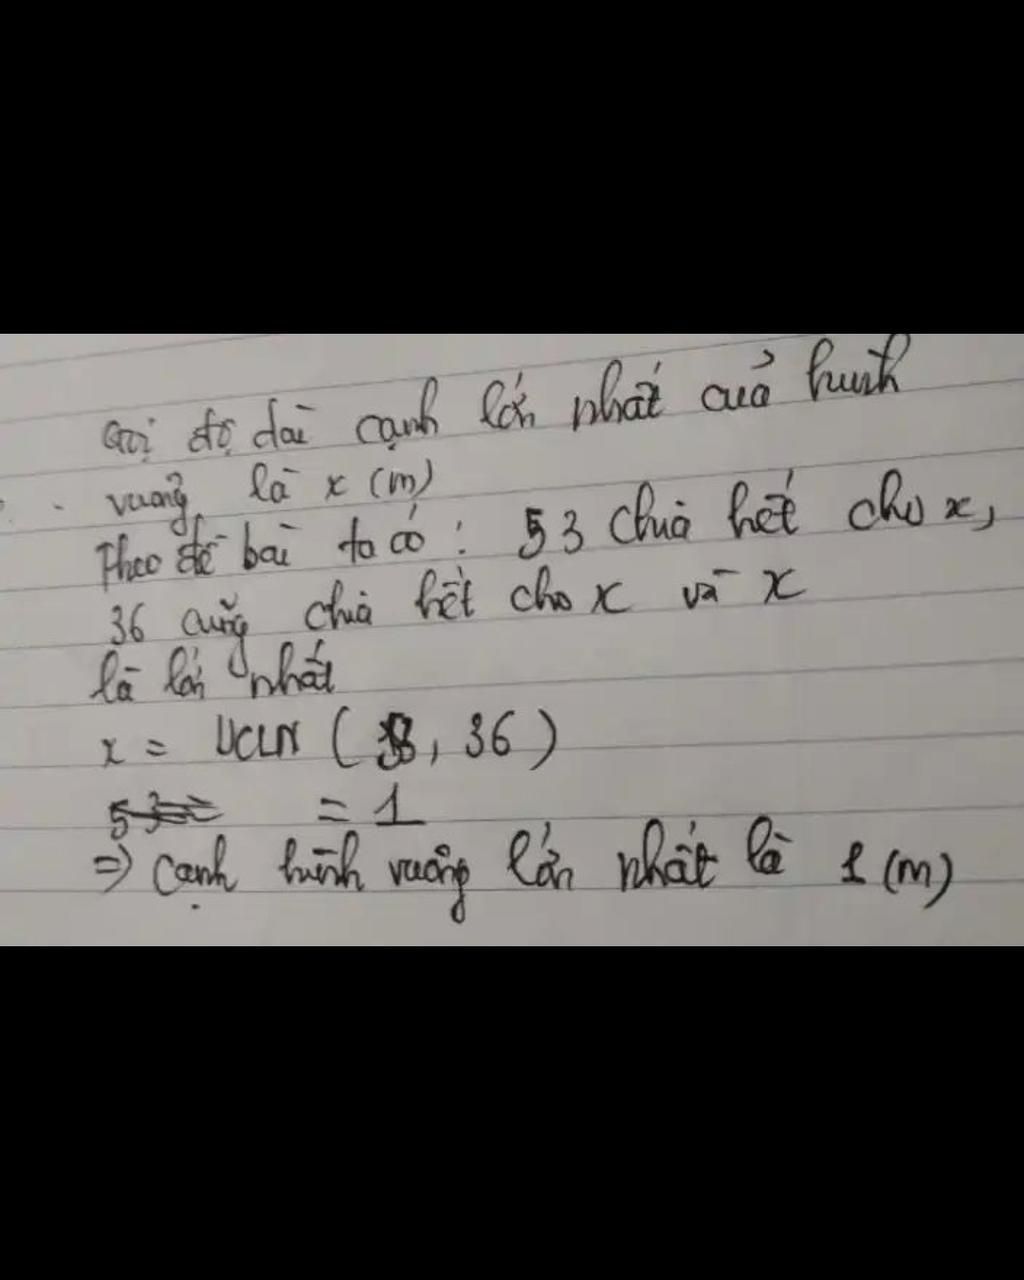 Gọi độ dài cạnh lớn nhất của hình
vuông là x (m)
Theo đề bài ta có : 53 chia hết cho x,
36 cũng chia hết cho x và x
là lớn nhất
x = UCLN ( 53, 36 )
53 = = 1
=> Cạnh hình vuông lớn nhất là 1 (m)